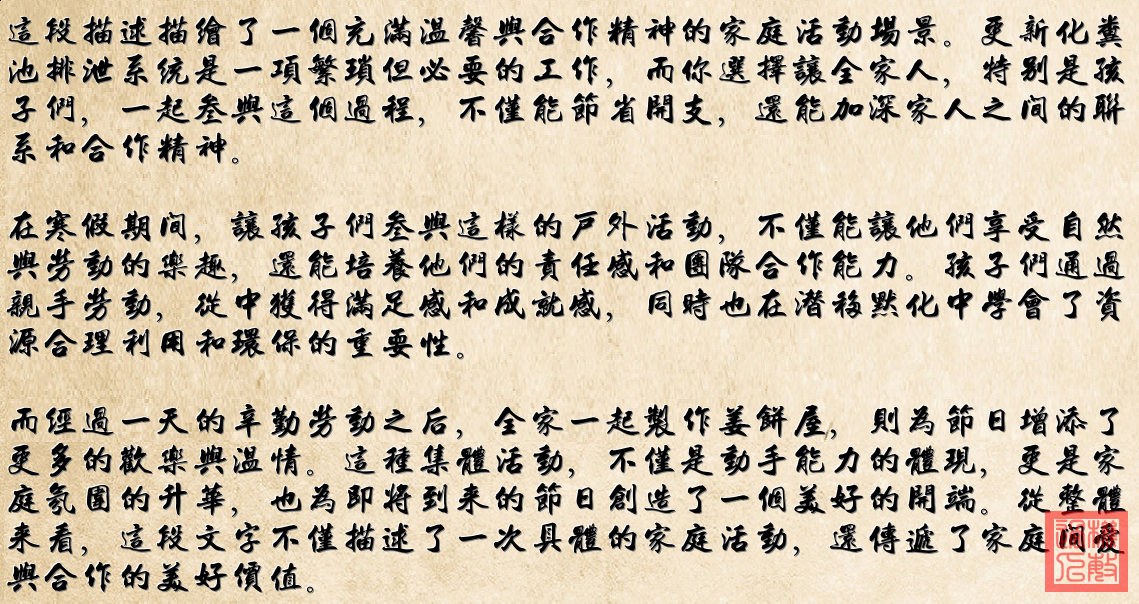 這段描述描繪了一個充滿溫馨與合作精神的家庭活動場景。更新化糞
池排泄系统是一項繁瑣但必要的工作，而你選擇讓全家人，特别是孩
子們，一起叁與這個過程，不僅能節省開支，還能加深家人之间的聯
系和合作精神。
在寒假期间，讓孩子們叁與這樣的戶外活動，不僅能讓他們享受自然
與勞動的樂趣，還能培養他們的責任感和團隊合作能力。孩子們通過
親手勞動，從中獲得滿足感和成就感，同時也在潜移默化中學會了資
源合理利用和環保的重要性。
而經過一天的辛勤勞動之后，全家一起製作姜餅屋，則為節日增添了
更多的歡樂與溫情。這種集體活動，不僅是動手能力的體現，更是家
庭氛圍的升華，也為即將到来的節日創造了一個美好的開端。從整體
来看，這段文字不僅描述了一次具體的家庭活動，還傳遞了家庭间愛
與合作的美好價值。